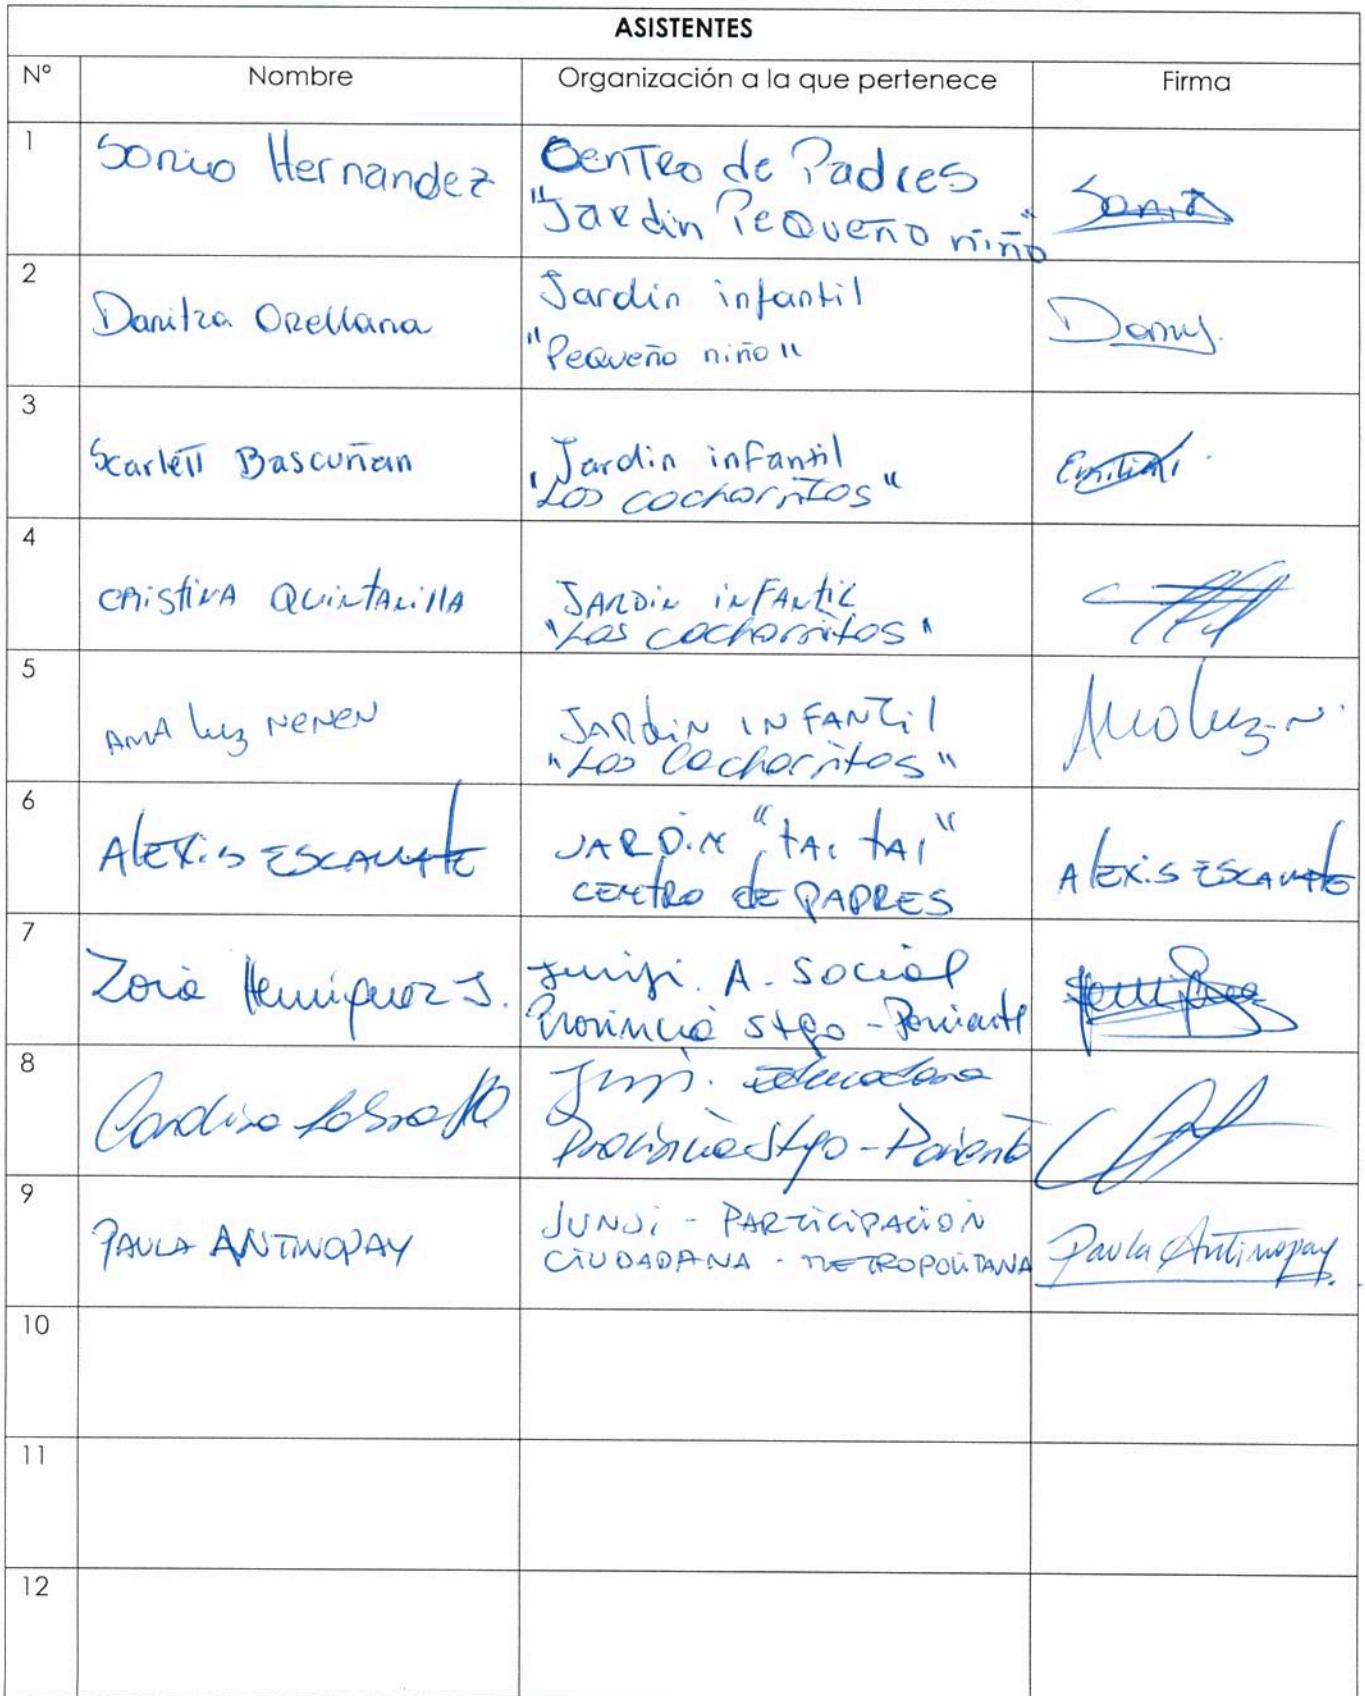 ASISTENTES
N° Nombre Organización a la que pertenece Firma
1 Sonia Hernandez Centro de Padres
"Jardin Pequeño niño" Sonia
2 Danitza Orellana Jardin infantil
"Pequeño niño" Dany.
3 Scarlett Bascuñan Jardin infantil
"Los cachorritos"
4 CRistiNA QuintANillA JARDiN iNFANtiL
"Los cachorritos"
5 ANA luz NeNeN JARdiN INFANtil
"Los Cachorritos" Ana luz N.
6 AlEXis ESCAlANtE JARDiN "tAi tAI"
CENtRO dE PADRES AlEXis ESCAlANtE
7 Henriquez J. Junji. A. Social
Provincia Stgo - Poniente
8 Junji. Educadora
Provincia Stgo - Poniente
9 PAULA ANTINOPAY JUNJi - PARTiCiPACiÓN
CiUDADANA - METROPOLiTANA Paula Antinopay
10
11
12